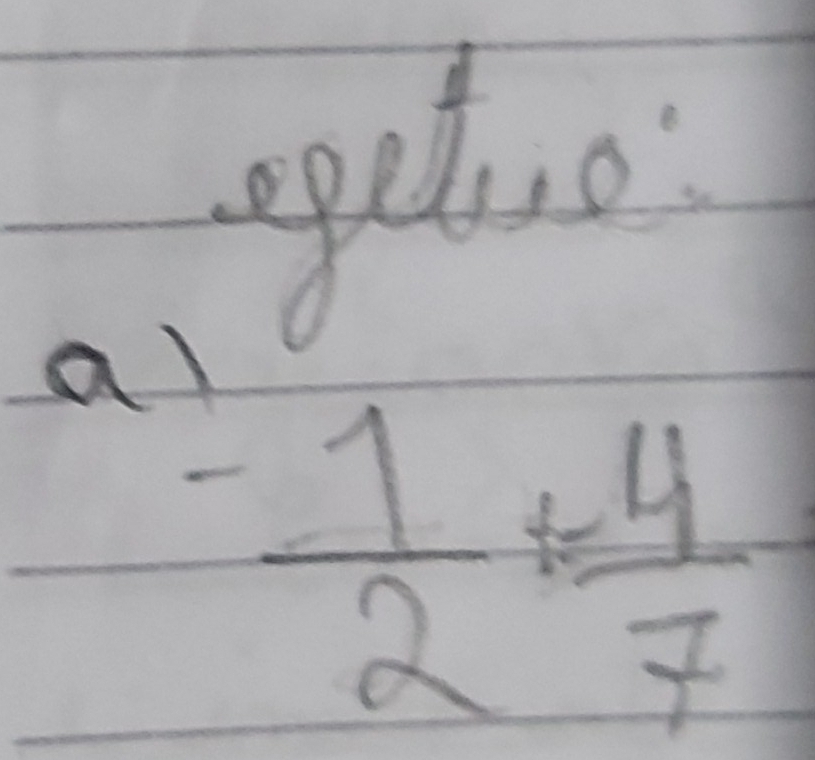 egetue:
a)
- 1/2 + 4/7